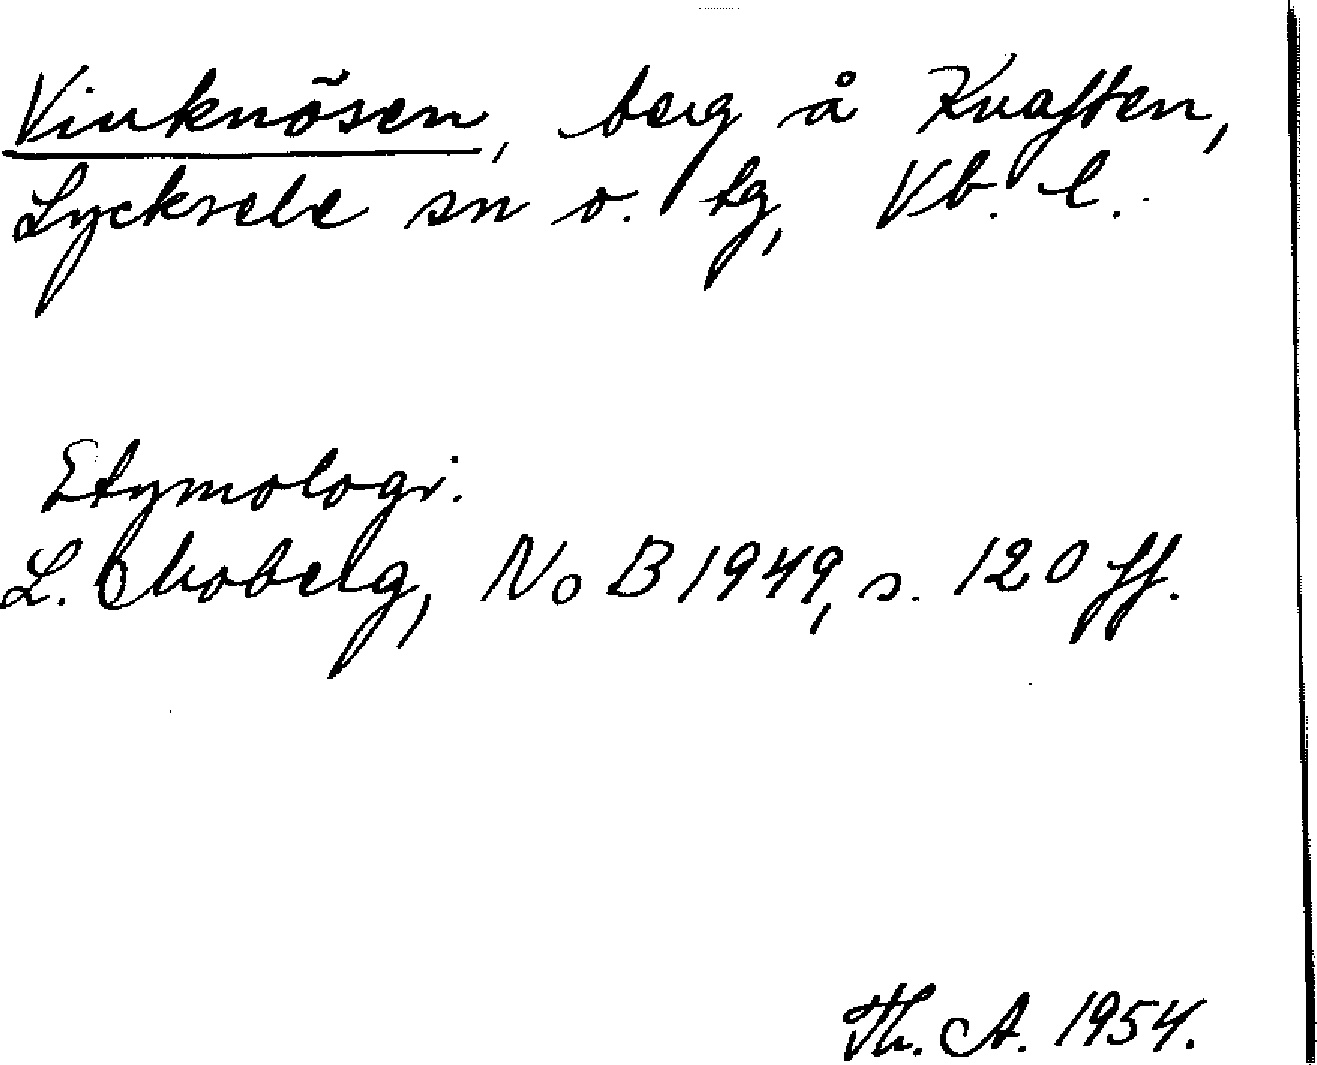 Vinknösen, berg å Knaften,
Lycksele sn o. tg, Vb. l.
Etymologi.
L. Moberg, NoB 1949, s. 120 ff.
Th. A. 1954.